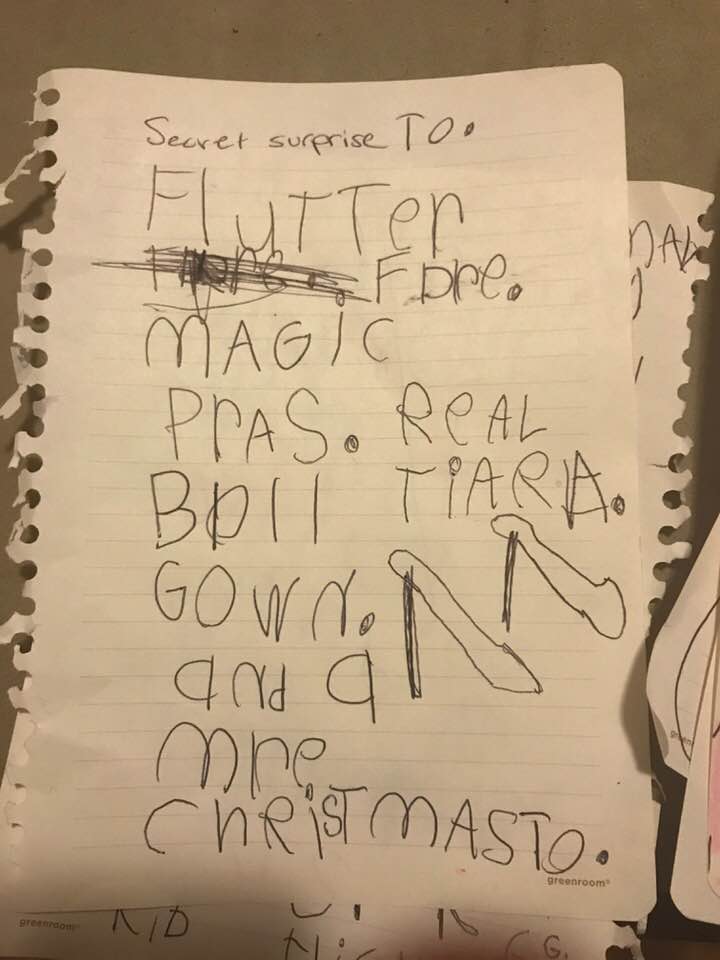 Secret surprise TO.
FluTTer
Fore.
MAGiC
PrAS. ReAL
Boll TiARA.
GOWN.
and a
mre
ChRiSTMASTO.
greenroom®
greenroom®